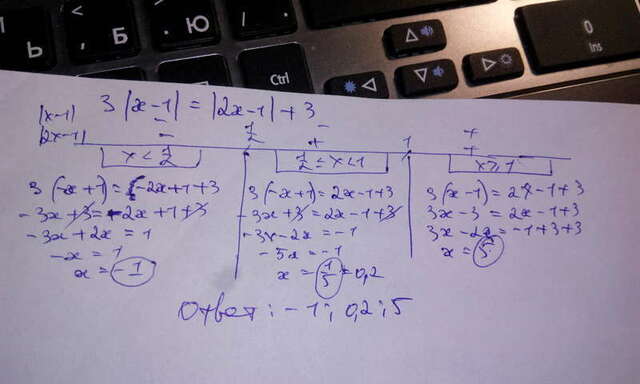 Ь
Б
Ю
Ctrl
0
Ins
3 |x-1| = |2x-1| + 3
|x-1| - - +
|2x-1| - 1/2 + 1 +
x < 1/2
1/2 ≤ x < 1
x ≥ 1
3 (-x+1) = -2x+1+3
-3x+3 = -2x+1+3
-3x+2x = 1
-x = 1
x = -1
3 (-x+1) = 2x-1+3
-3x+3 = 2x-1+3
-3x-2x = -1
-5x = -1
x = 1/5 = 0,2
3 (x-1) = 2x-1+3
3x-3 = 2x-1+3
3x-2x = -1+3+3
x = 5
Ответ: -1; 0,2; 5